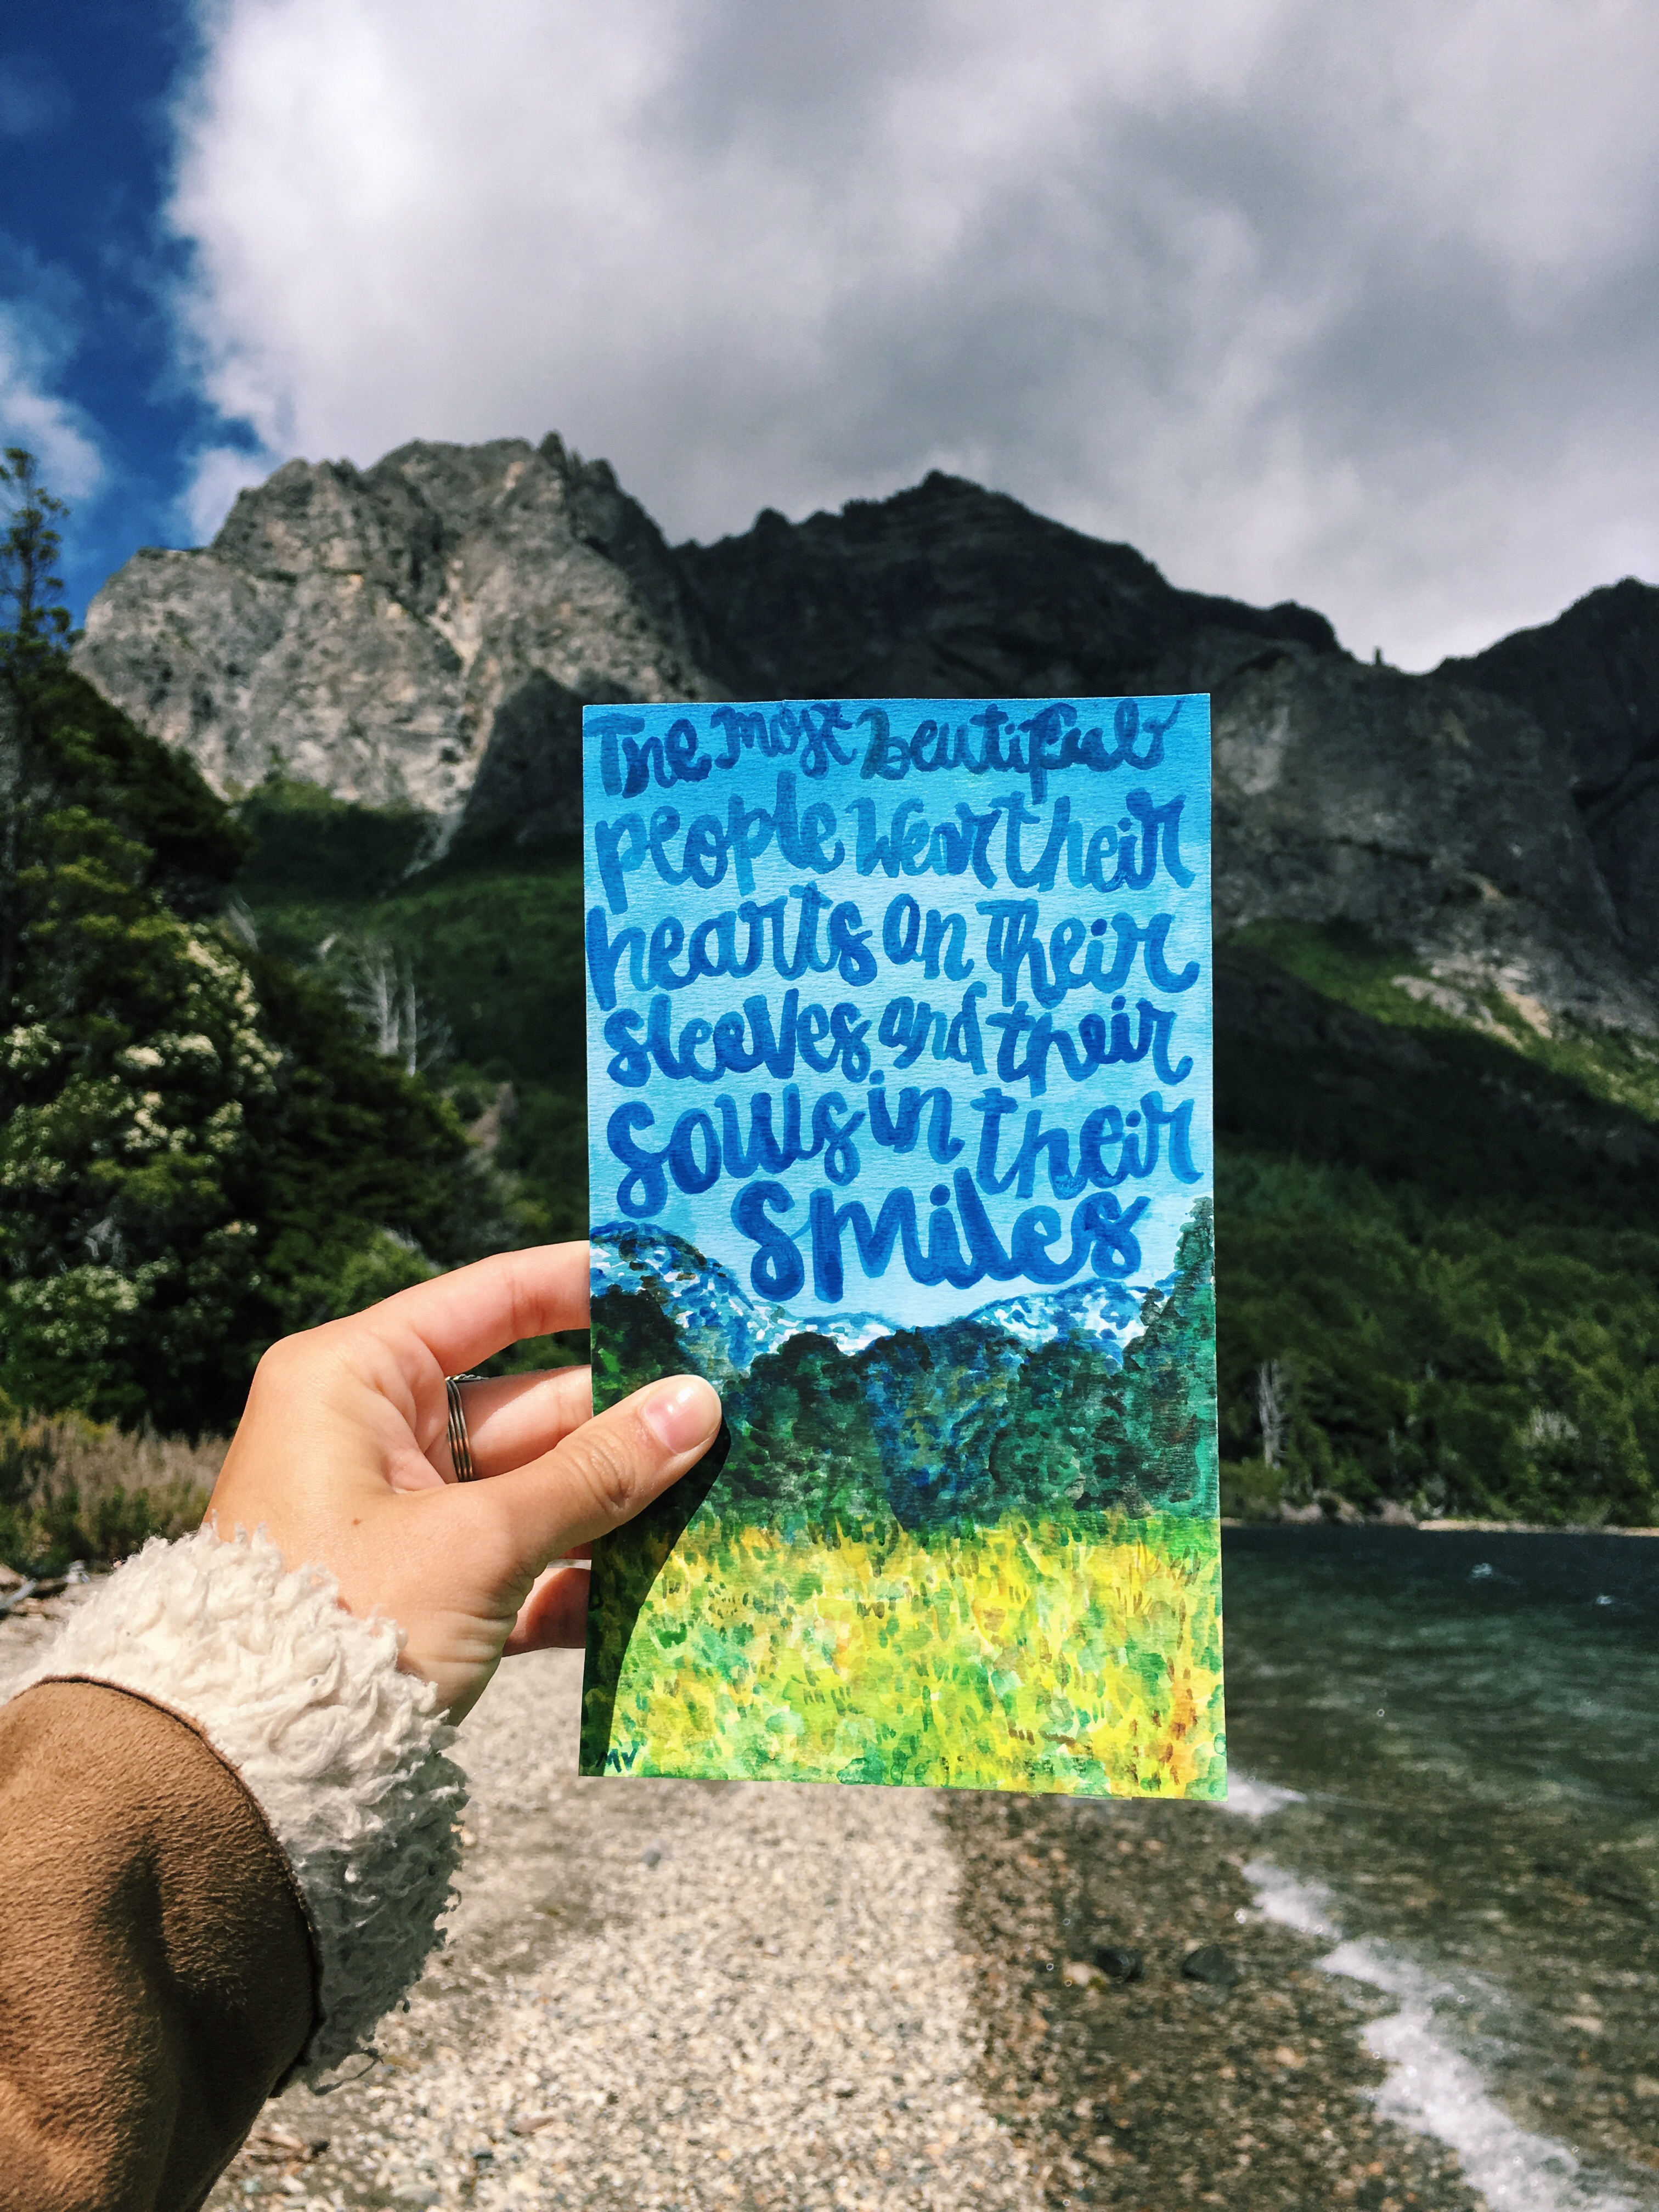 The most beutiful
people wear their
hearts on their
sleeves and their
souls in their
smiles
MV